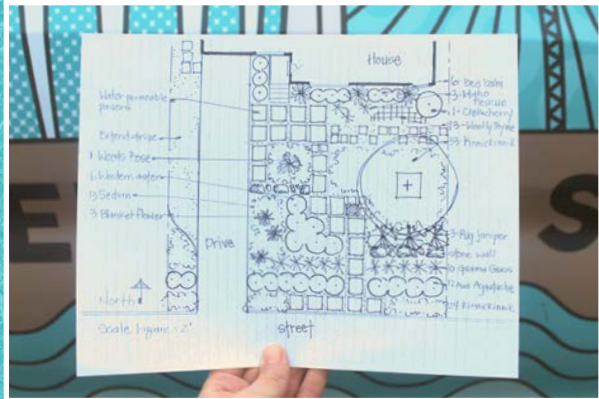 House
Water permeable
pavers
Extend drive
1 Woods Rose
Western aster
13 Sedum
3 Blanket flower
Drive
North
Scale 1 square = 2'
street
6 Bee balm
3 Idaho
Fescue
1 - Chokecherry
33 - Woolly Thyme
33 - Kinnickinnik
3 - Pug Juniper
Stone wall
Grama Grass
Agastache
Kinnickinnik
E
S